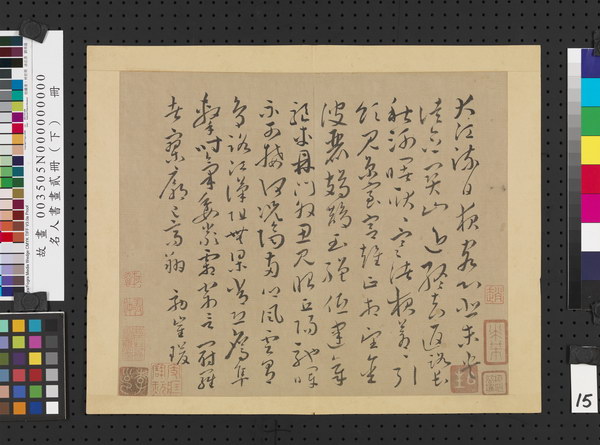 大江流日夜客心悲未央
徒念關山近終知返路長
秋河曙耿耿寒渚夜蒼蒼引
領見京室宮雉正相望金
波麗鳷鵲玉繩低建章
驅車鼎門外思見昭丘陽馳暉
不可接何況隔兩鄉風雲有
鳥路江漢限無梁常恐鷹隼
擊時菊委嚴霜寄言罻羅
者寥廓已高翔 效崔瑗
故畫 003505N000000000 冊
名人書畫貳冊(下)
15